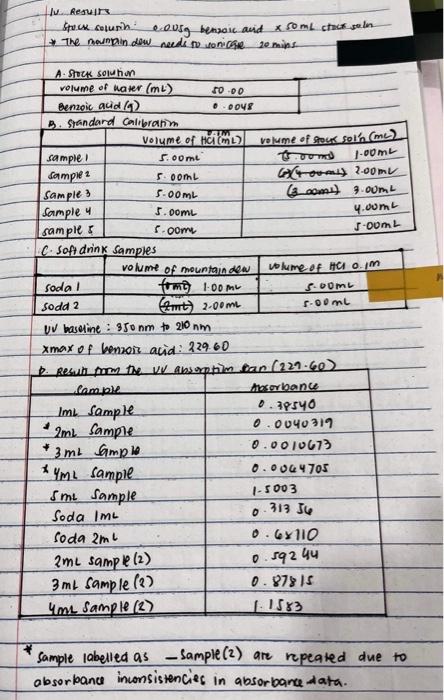 IV. Results
Stock solution: 0.005g benzoic acid x 50mL stock soln
* The mountain dew needs to sonicate 20 mins.
A. Stock solution
volume of water (mL) 50.00
Benzoic acid (g) 0.0048
B. Standard Calibration
volume of HCl 0.1M (mL) volume of stock sol'n (mL)
sample 1 5.00mL (5.00mL) 1.00mL
sample 2 5.00mL (4.00mL) 2.00mL
sample 3 5.00mL (3.00mL) 3.00mL
sample 4 5.00mL 4.00mL
sample 5 5.00mL 5.00mL
C. Soft drink samples
volume of mountain dew volume of HCl 0.1M
soda 1 (1mL) 1.00mL 5.00mL
soda 2 (2mL) 2.00mL 5.00mL
UV baseline: 350nm to 210nm
xmax of benzoic acid: 229.60
D. Result from the UV absorption scan (229.60)
Sample Absorbance
1mL Sample 0.38540
* 2mL Sample 0.0040319
* 3mL Sample 0.0010673
* 4mL Sample 0.0064705
5mL Sample 1.5003
Soda 1mL 0.31356
Soda 2mL 0.68110
2mL sample (2) 0.59244
3mL Sample (2) 0.87815
4mL Sample (2) 1.1583
* Sample labelled as _ Sample (2) are repeated due to
absorbance inconsistencies in absorbance data.